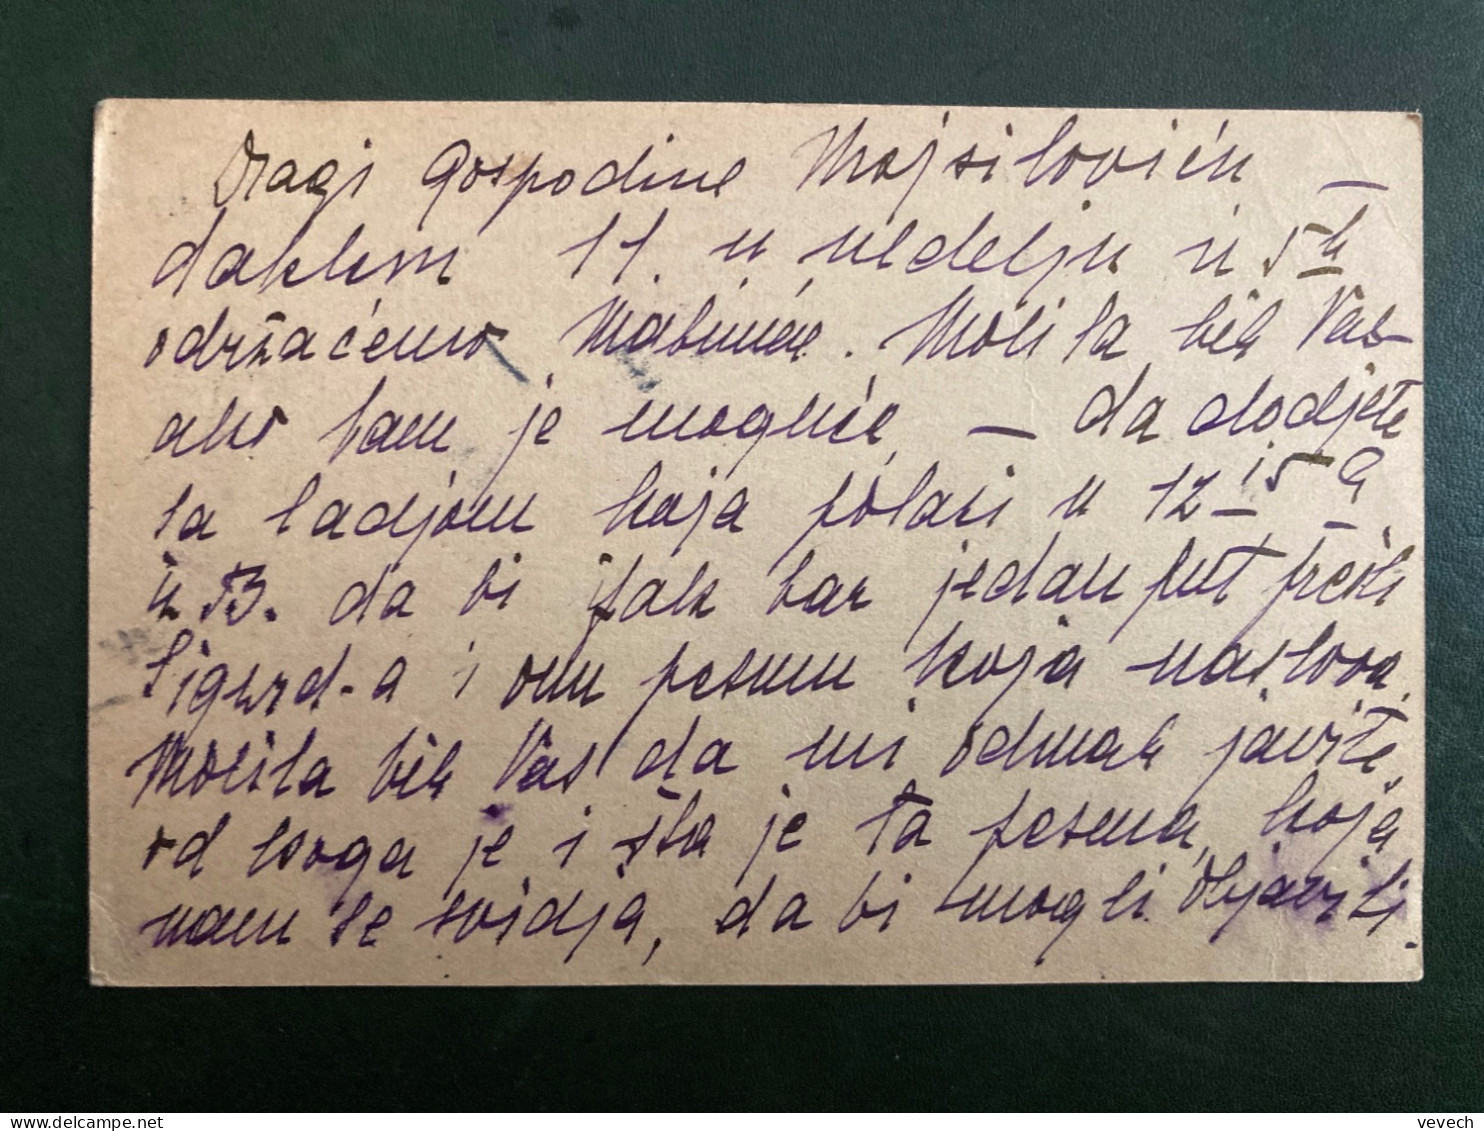 Dragi Gospodine Mojsiloviću –
daklem 11. u nedelju u 5 h
održaćemo Matinée. Molila bih Vas
ako Vam je moguće – da dodjete
sa ladjom koja polazi u 12 15
u B. da bi ipak bar jedan put prešli
Sigurd-a i onu pesmu koja naslova.
Molila bih Vas da mi odmah javite,
od koga je i šta je ta pesma, koja
nam se svidja, da bi mogli objaviti.
vevech